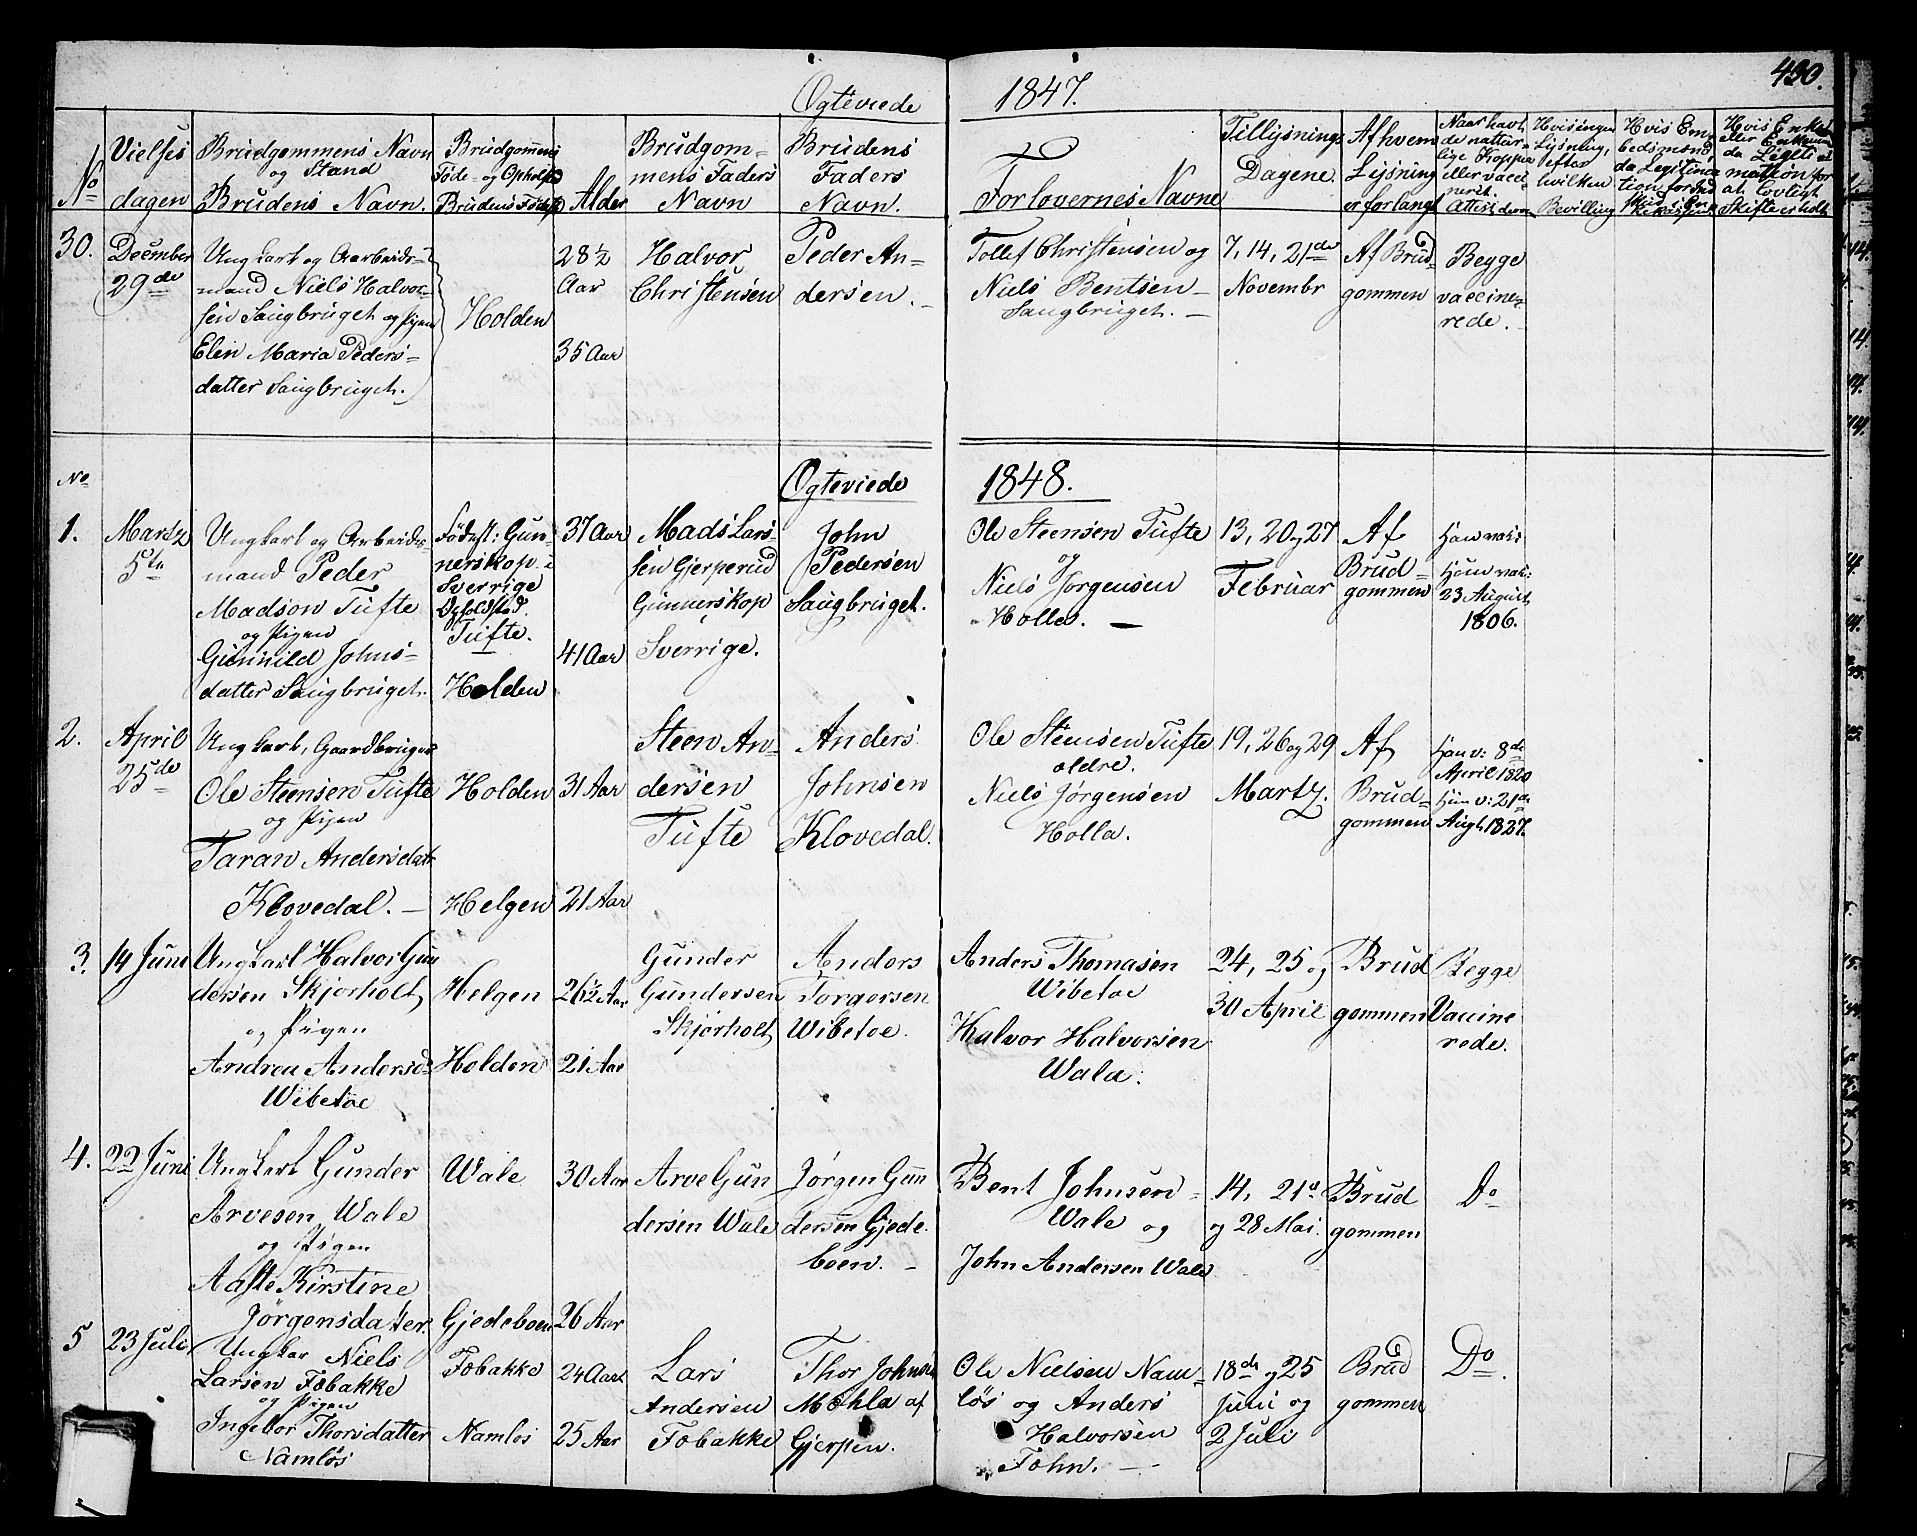 430.
Ogteviede
1847.
No
Vielses
dagen
Brudgommens Navn
og Stand
Brudens Navn.
Brudgommens
Føde- og Opholsted
Brudens Fødested
Alder
Brudgom=
mens Faders
Navn
Brudens
Faders
Navn.
Forlovernes Navne
Tillysnings
Dagene.
Af hvem
Lysning
er forlangt
Naar havt
de natur
lige Kopper
eller vacci
neret.
Hvis ingen
Lysning,
efter
hvilken
Bevilling
30.
December
29de
Ungkarl og Aarbeids=
mand Niels Halvor=
sen Saugbruget og Pigen
Elen Maria Peders=
datter Saugbruget.
Holden
28 1/2
Aar
35 Aar
Halvor
Christensen
Peder An=
dersen.
Tollef Christensen og
Niels Bentsen
Saugbruget.
7, 14, 21de
Novembr
Af Brud=
gommen
Begge
vaccine=
rede.
No
Ogteviede
1848.
1.
Martz
5te
Ungkarl og Arbeids=
mand Peder
Madson Tufte
og Pigen
Gunnild Johns=
datter Saugbruget.
Fødest: Gun=
nerskop i
Sverrige
Opholdsted
Tufte.
Holden
37 Aar
41 Aar
Mads Lars=
sen Gjerperud
Gunnerskop
Sverrige.
John
Pedersen
Saugbruget.
Ole Steensen Tufte
og
Niels Jørgensen
Holles.
13, 20 og 27
Februar
Af
Brud=
gommen
Han vak:
Hun vak:
23 August
1806.
2.
April
25de
Ungkarl, Gaardbruger
Ole Steensen Tufte
og Pigen
Taran Andersdatt
Klovedal.
Holden
Helgen
31 Aar
21 Aar
Steen An=
dersen
Tufte
Anders
Johnsen
Klovedal.
Ole Stensen Tufte
oldre.
Niels Jørgensen
Holla.
19, 26 og 29
Martz.
Af
Brud=
gommen
Han v: 8de
April 1820
Hun v: 21de
Augt 1827.
3.
14 Juni
Ungkarl Halvor Gun
dersen Skjorholt
og Pigen
Andrea Andersd=
Wibetoe
Helgen
Holden
26 1/2 Aar
21 Aar
Gunder
Gundersen
Skjørholt
Anders
Torgersen
Wibetoe.
Anders Thomasen
Wibetoe
Halvor Halvorsen
Wala.
24, 25 og
30 April
Brud
gommen
Begge
Vaccine
rede.
4.
22 Juni
Ungkarl Gunder
Arvesen Wale
og Pigen
Aaste Kirstine
Jørgensdatter.
Wale
Gjedeboen
30 Aar
26 Aar
Arve Gun
dersen Wale
Jørgen Gun
dersen Gjede=
boen.
Bent Johnsen
Wale og
John Andersen Wale
14, 21d
og 28 Mai.
Brud
gommen
Do
5
23 Juli
Ungkar Niels
Larsen Fobakke
og Pigen
Ingebor Thorsdatter
Namløs
Fobakke
Namløs
24 Aar
25 Aar
Lars
Andersen
Fobakke
Thor Johnsen
Mohla af
Gjerpen.
Ole Nielsen Nam=
løs og Anders
Halvorsen
Fohn.
18de og 25
Juni og
2 Juli
Brud
gommen
Do.